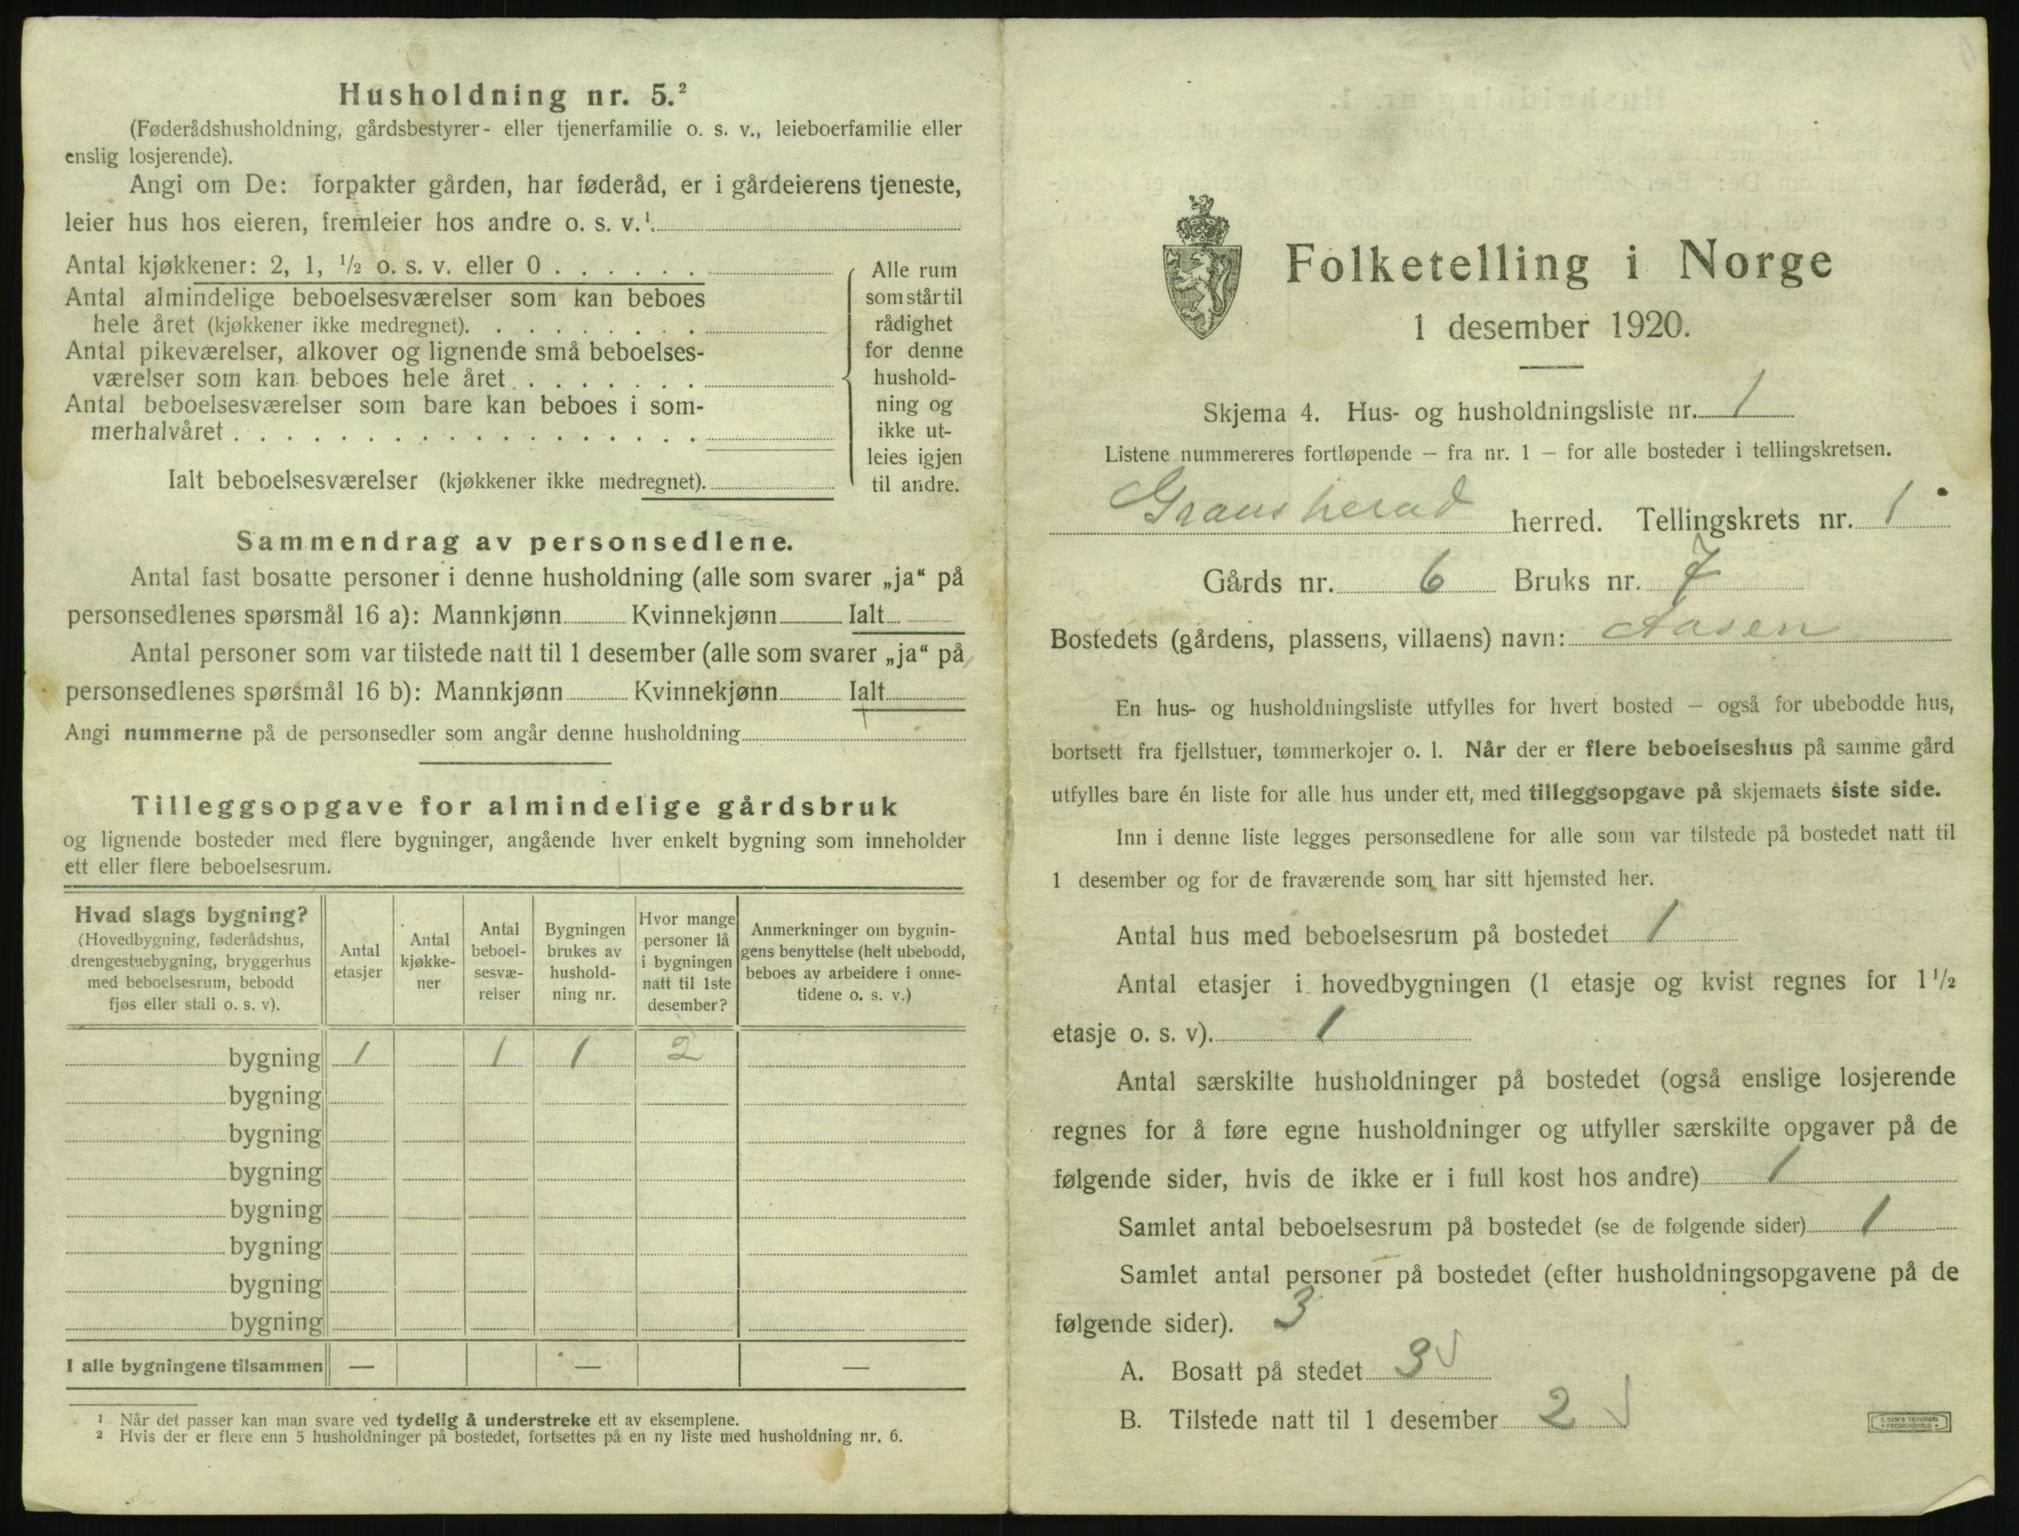 Husholdning nr. 5.²
(Føderådshusholdning, gårdsbestyrer- eller tjenerfamilie o. s. v., leieboerfamilie eller
enslig losjerende).
Angi om De: forpakter gården, har føderåd, er i gårdeierens tjeneste,
leier hus hos eieren, fremleier hos andre o. s. v.¹
Antal kjøkkener: 2, 1, ½ o. s. v. eller 0
Antal almindelige beboelsesværelser som kan beboes
hele året (kjøkkener ikke medregnet).
Antal pikeværelser, alkover og lignende små beboelses-
værelser som kan beboes hele året
Antal beboelsesværelser som bare kan beboes i som-
merhalvåret
Ialt beboelsesværelser (kjøkkener ikke medregnet).
Alle rum
som står til
rådighet
for denne
hushold-
ning og
ikke ut-
leies igjen
til andre.
Sammendrag av personsedlene.
Antal fast bosatte personer i denne husholdning (alle som svarer „ja“ på
personsedlenes spørsmål 16 a): Mannkjønn Kvinnekjønn Ialt
Antal personer som var tilstede natt til 1 desember (alle som svarer „ja“ på
personsedlenes spørsmål 16 b): Mannkjønn Kvinnekjønn Ialt
Angi nummerne på de personsedler som angår denne husholdning
Tilleggsopgave for almindelige gårdsbruk
og lignende bosteder med flere bygninger, angående hver enkelt bygning som inneholder
ett eller flere beboelsesrum.
Hvad slags bygning?
(Hovedbygning, føderådshus,
drengestuebygning, bryggerhus
med beboelsesrum, bebodd
fjøs eller stall o. s. v).
Antal
etasjer
Antal
kjøkke-
ner
Antal
beboel-
sesvæ-
relser
Bygningen
brukes av
hushold-
ning nr.
Hvor mange
personer lå
i bygningen
natt til 1ste
desember?
Anmerkninger om bygnin-
gens benyttelse (helt ubebodd,
beboes av arbeidere i onne-
tidene o. s. v.)
bygning 1 1 1 2
bygning
bygning
bygning
bygning
bygning
bygning
bygning
I alle bygningene tilsammen — — —
¹ Når det passer kan man svare ved tydelig å understreke ett av eksemplene.
² Hvis der er flere enn 5 husholdninger på bostedet, fortsettes på en ny liste med husholdning nr. 6.
Folketelling i Norge
1 desember 1920.
Skjema 4. Hus- og husholdningsliste nr. 1
Listene nummereres fortløpende – fra nr. 1 – for alle bosteder i tellingskretsen.
Gransherad herred. Tellingskrets nr. 1
Gårds nr. 6 Bruks nr. 7
Bostedets (gårdens, plassens, villaens) navn: Aasen
En hus- og husholdningsliste utfylles for hvert bosted – også for ubebodde hus,
bortsett fra fjellstuer, tømmerkojer o. l. Når der er flere beboelseshus på samme gård
utfylles bare én liste for alle hus under ett, med tilleggsopgave på skjemaets siste side.
Inn i denne liste legges personsedlene for alle som var tilstede på bostedet natt til
1 desember og for de fraværende som har sitt hjemsted her.
Antal hus med beboelsesrum på bostedet 1
Antal etasjer i hovedbygningen (1 etasje og kvist regnes for 1½
etasje o. s. v). 1
Antal særskilte husholdninger på bostedet (også enslige losjerende
regnes for å føre egne husholdninger og utfyller særskilte opgaver på de
følgende sider, hvis de ikke er i full kost hos andre) 1
Samlet antal beboelsesrum på bostedet (se de følgende sider) 1
Samlet antal personer på bostedet (efter husholdningsopgavene på de
følgende sider). 3
A. Bosatt på stedet 3
B. Tilstede natt til 1 desember 2